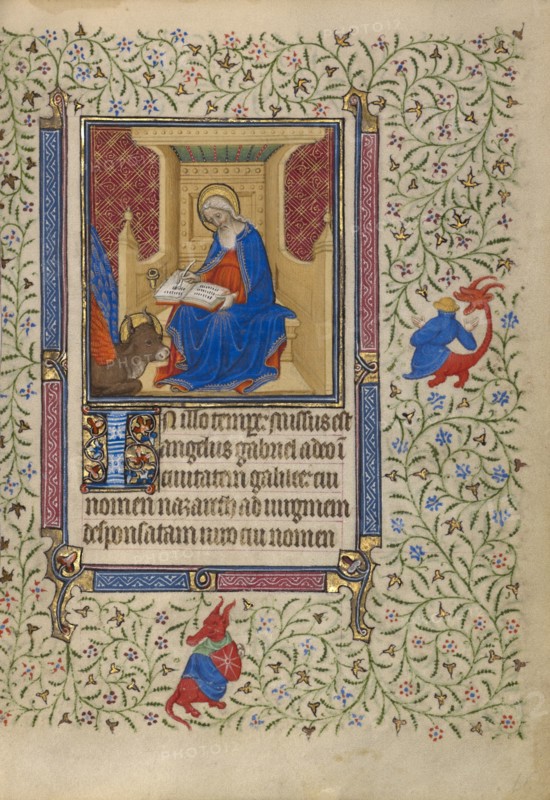 In illo tempr̃: missus est
angelus gabriel a deo ĩ
ciuitatem galilee: cui
nomen nazareth ad uirginem
desponsatam uiro cui nomen
PHOTO12